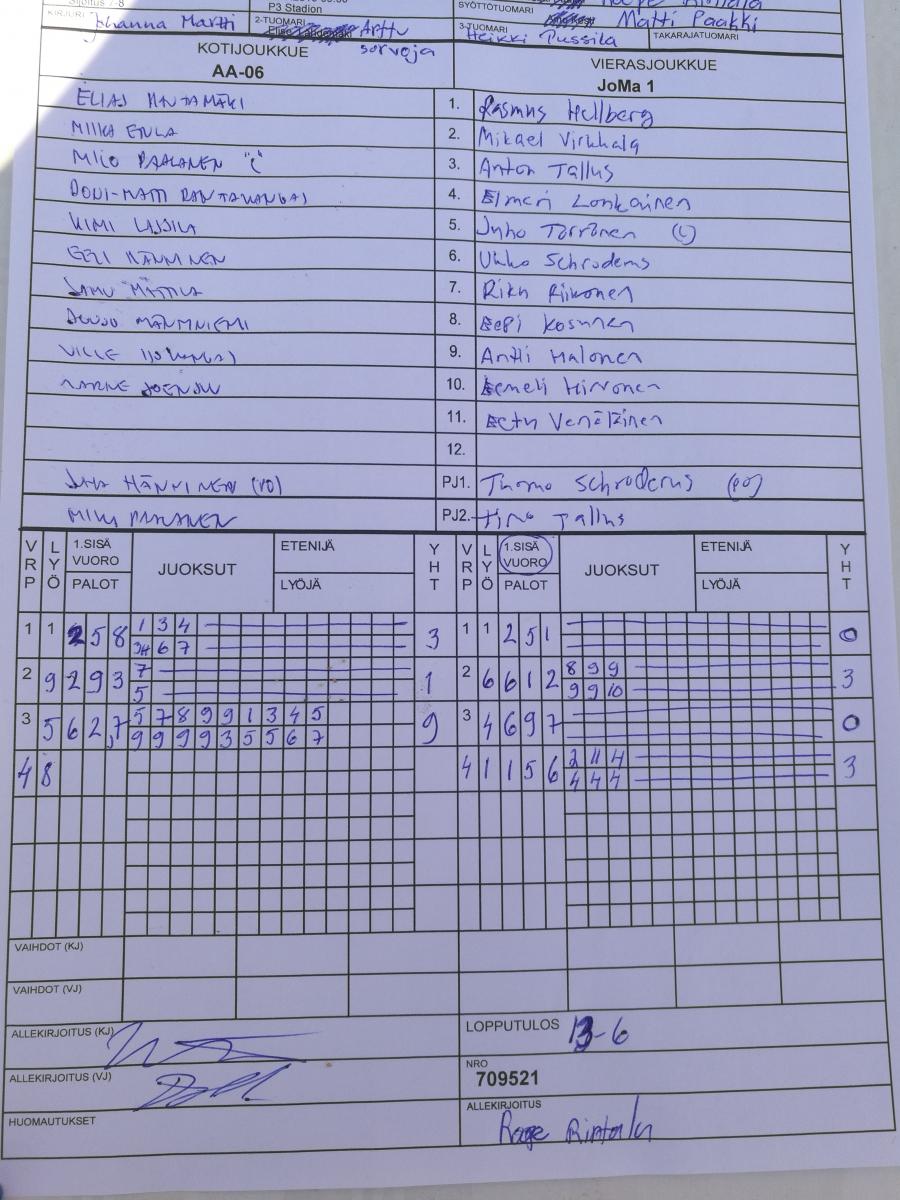 Sijoitus 7-8
P3 Stadion
SYÖTTÖTUOMARI
Matti Paakki
KIRJURI Johanna Martti
2-TUOMARI Arttu
sorvoja
3-TUOMARI
Heikki Pussila
TAKARAJATUOMARI
KOTIJOUKKUE
AA-06
VIERASJOUKKUE
JoMa 1
ELIAS 1. Rasmus Hellberg
MIIKA 2. Mikael Virkkala
MILO PAALANEN "C" 3. Anton Tallus
4. Elmeri Lonkainen
KIMI 5. Juho Torronen (L)
EELI HÄNNINEN 6. Ukko Schroderus
SAMU MATTILA 7. Riku Riikonen
8. Eepi Kosunen
VILLE 9. Antti Malonen
AARNE 10. Eemeli Hirvonen
11. Eetu Venäläinen
12.
JUHA HÄNNINEN PJ1. Thomo Schroderus
MIKA PAALANEN PJ2. Tino Tallus
VRP LYÖ 1.SISÄ VUORO PALOT JUOKSUT ETENIJÄ LYÖJÄ YHT VRP LYÖ 1.SISÄ VUORO PALOT JUOKSUT ETENIJÄ LYÖJÄ YHT
1 1 2 5 8 1 3 4 3 1 1 2 5 1 0
6 7
2 9 2 9 3 7 1 2 6 6 1 2 8 9 9 3
5 9 9 10
3 5 6 2 7 5 7 8 9 9 1 3 4 5 9 3 4 6 9 7 0
9 9 9 9 3 5 5 6 7
4 8 4 1 1 5 6 2 11 4 3
4 4 4
VAIHDOT (KJ)
VAIHDOT (VJ)
ALLEKIRJOITUS (KJ)
LOPPUTULOS 13-6
ALLEKIRJOITUS (VJ)
NRO
709521
HUOMAUTUKSET
ALLEKIRJOITUS